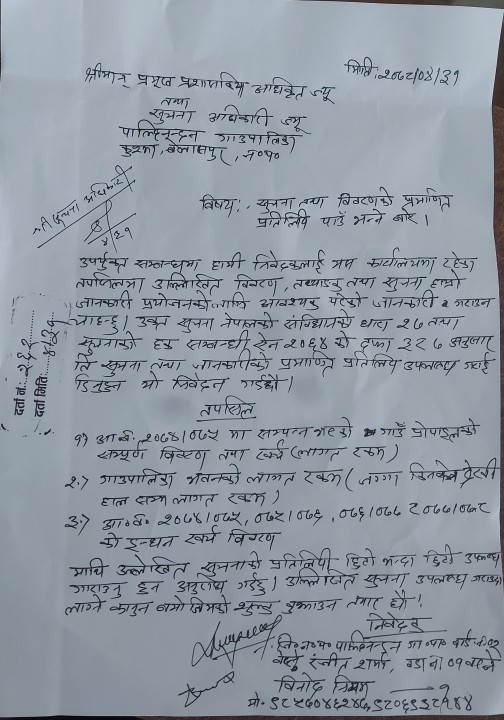 मिति: २०७८/०४/३१
श्रीमान् प्रमुख प्रशासकिय अधिकृत ज्यू
तथा
सूचना अधिकारी ज्यू
पाल्हिनन्दन गाउपालिका
विषय: सूचना तथा विवरणको प्रमाणित
प्रतिलिपि पाउँ भन्ने बारे ।
श्री सूचना अधिकारी
४/३१
उपर्युक्त सम्बन्धमा हामी निवेदकलाई त्यस कार्यालयमा रहेका
तपशिलमा उल्लिखित विवरण, तथ्याङ्क तथा सूचना हाम्रो
जानकारी प्रयोजनको लागि आवश्यक परेको जानकारी गराउन
चाहन्छु। उक्त सूचना नेपालको संविधानको धारा २७ तथा
सूचनाको हक सम्बन्धी ऐन २०६४ को दफा ३ र ७ अनुसार
ति सूचना तथा जानकारीको प्रमाणित प्रतिलिपि उपलब्ध गराई
दिनुहुन यो निवेदन गर्दछौ।
दर्ता नं.:
दर्ता मिति: ४/३१
तपसिल
१) आ.ब. २०७४/०७५ मा सम्पन्न भएको गाउँ प्रोफाइलको
सम्पूर्ण विवरण तथा खर्च (लागत रकम)
२.) गाउपालिका भवनको लागत रकम ( जग्गा किनबेच देखी
हाल सम्म लागत रकम )
३.) आ.ब. २०७४/०७५, ०७५/०७६, ०७६/०७७ र ०७७/०७८
को इन्धन खर्च विवरण
माथि उल्लेखित सूचनाको प्रतिलिपी छिटो भन्दा छिटो उपलब्ध
गराउनु हुन अनुरोध गर्दछु। उल्लिखित सूचना उपलब्ध गराउदा
लाग्ने कानुन बमोजिमको शुल्क बुझाउन तयार छौ।
निवेदक
जि.न.प. पाल्हिनन्दन गा.पा. वार्ड नं.
रंजीत शर्मा,
विनोद
मो.